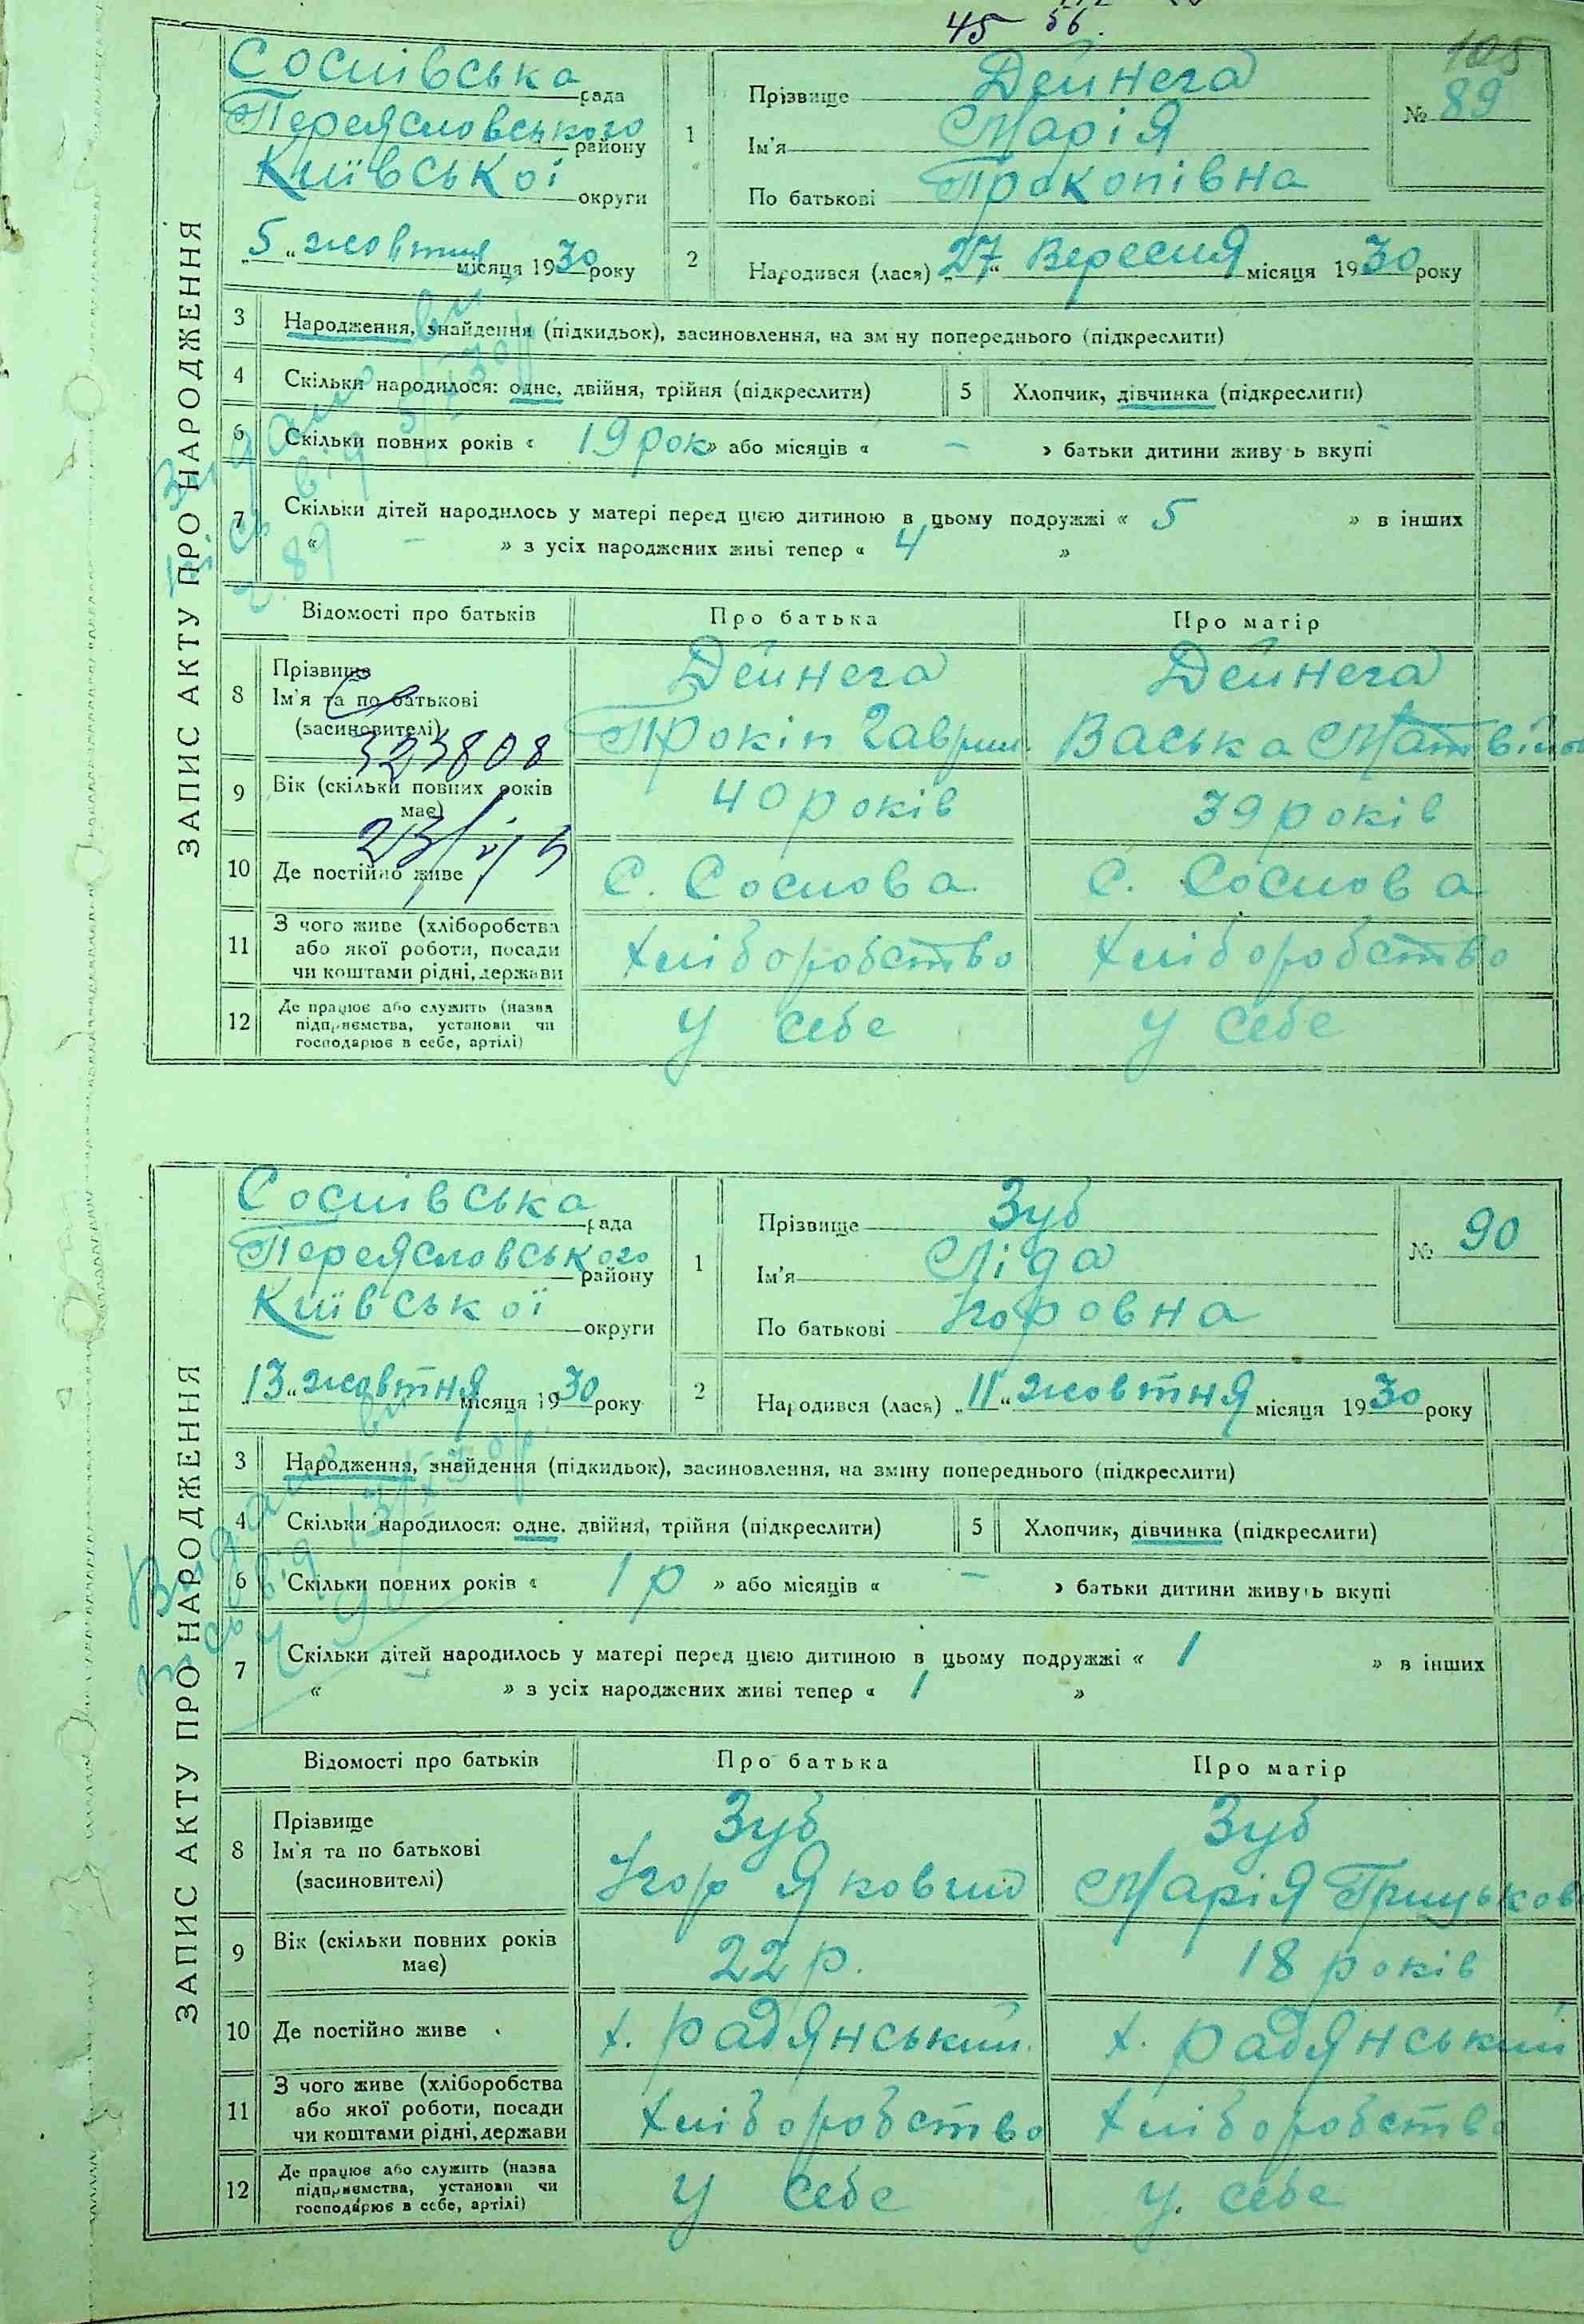 45 56.
105
ЗАПИС АКТУ ПРО НАРОДЖЕННЯ
Соснівська рада
Переясловського району
Київської округи
„5“ жовтня місяця 1930 року
1 Прізвище Дейнега
Ім'я Марія
По батькові Прокопівна
№ 89
2 Народився (лася) „27“ Вересня місяця 1930 року
3 Народження, знайдення (підкидьок), засиновлення, на зм ну попереднього (підкреслити)
4 Скільки народилося: одне, двійня, трійня (підкреслити) 5 Хлопчик, дівчинка (підкреслити)
6 Скільки повних років « 19 рок » або місяців « – » батьки дитини живу ь вкупі
7 Скільки дітей народилось у матері перед цією дитиною в цьому подружжі « 5 » в інших
« – » з усіх народжених живі тепер « 4 »
Відомості про батьків Про батька Про матір
8 Прізвище
Ім'я та по батькові
(засиновителі)
Дейнега
Прокіп Гаврил.
Дейнега
Васька Матвійов
323808
9 Вік (скільки повних років має) 40 років 39 років
10 Де постійно живе С. Соснова С. Соснова
11 З чого живе (хліборобства
або якої роботи, посади
чи коштами рідні, держави
Хліборобство Хліборобство
12 Де працює або служить (назва
підприємства, установи чи
господарює в себе, артілі)
У себе У себе
Видано ви
від 5/X 30 р
ч. 89
ЗАПИС АКТУ ПРО НАРОДЖЕННЯ
Соснівська рада
Переясловського району
Київської округи
„13“ жовтня місяця 1930 року
1 Прізвище Зуб
Ім'я Ліда
По батькові Ігоровна
№ 90
2 Народився (лася) „11“ жовтня місяця 1930 року
3 Народження, знайдення (підкидьок), засиновлення, на зміну попереднього (підкреслити)
4 Скільки народилося: одне, двійня, трійня (підкреслити) 5 Хлопчик, дівчинка (підкреслити)
6 Скільки повних років « 1 р » або місяців « – » батьки дитини живуть вкупі
7 Скільки дітей народилось у матері перед цією дитиною в цьому подружжі « 1 » в інших
« – » з усіх народжених живі тепер « 1 »
Відомості про батьків Про батька Про матір
8 Прізвище
Ім'я та по батькові
(засиновителі)
Зуб
Ігор Якович
Зуб
Марія Грицьков
9 Вік (скільки повних років має) 22 р. 18 років
10 Де постійно живе х. Радянський х. Радянський
11 З чого живе (хліборобства
або якої роботи, посади
чи коштами рідні, держави
Хліборобство Хліборобство
12 Де працює або служить (назва
підприємства, установи чи
господарює в себе, артілі)
У себе У себе
Видано ви
від 13/X 30 р.
ч 90